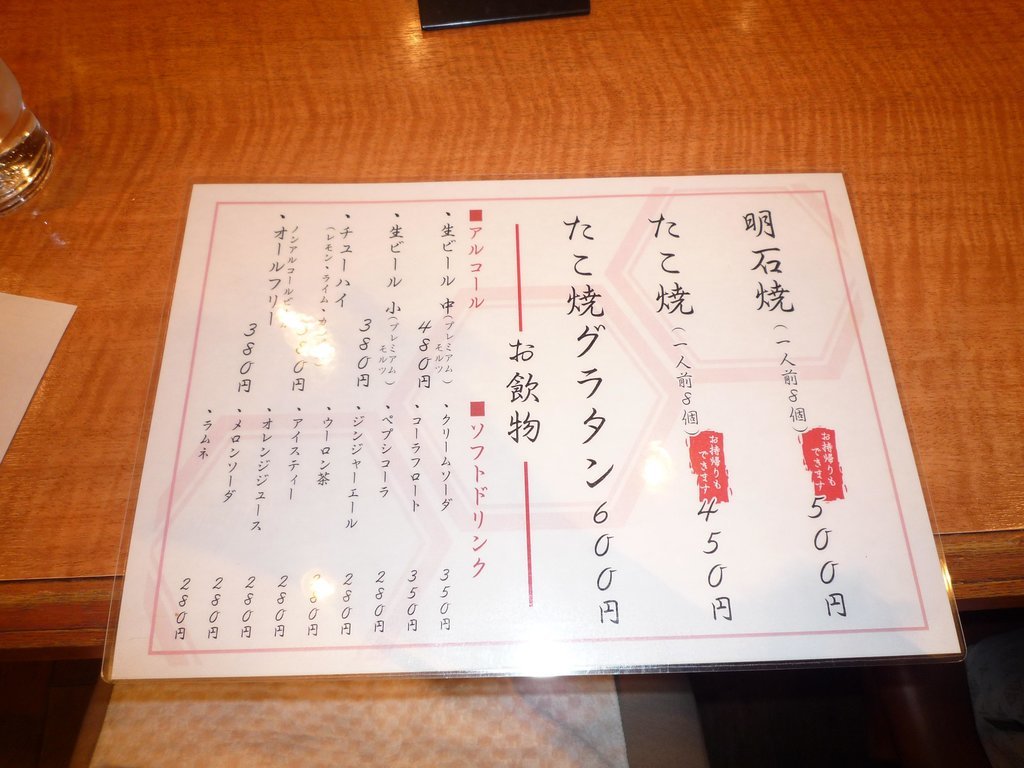 明石焼(一人前8個)お持帰りもできます500円
たこ焼(一人前8個)お持帰りもできます450円
たこ焼グラタン600円
お飲物
■アルコール
・生ビール 中(プレミアムモルツ)480円
・生ビール 小(プレミアムモルツ)380円
・チューハイ
(レモン・ライム・ 380円
ノンアルコール
・オールフリー 380円
■ソフトドリンク
・クリームソーダ 350円
・コーラフロート 350円
・ペプシコーラ 280円
・ジンジャーエール 280円
・ウーロン茶 280円
・アイスティー 280円
・オレンジジュース 280円
・メロンソーダ 280円
・ラムネ 280円